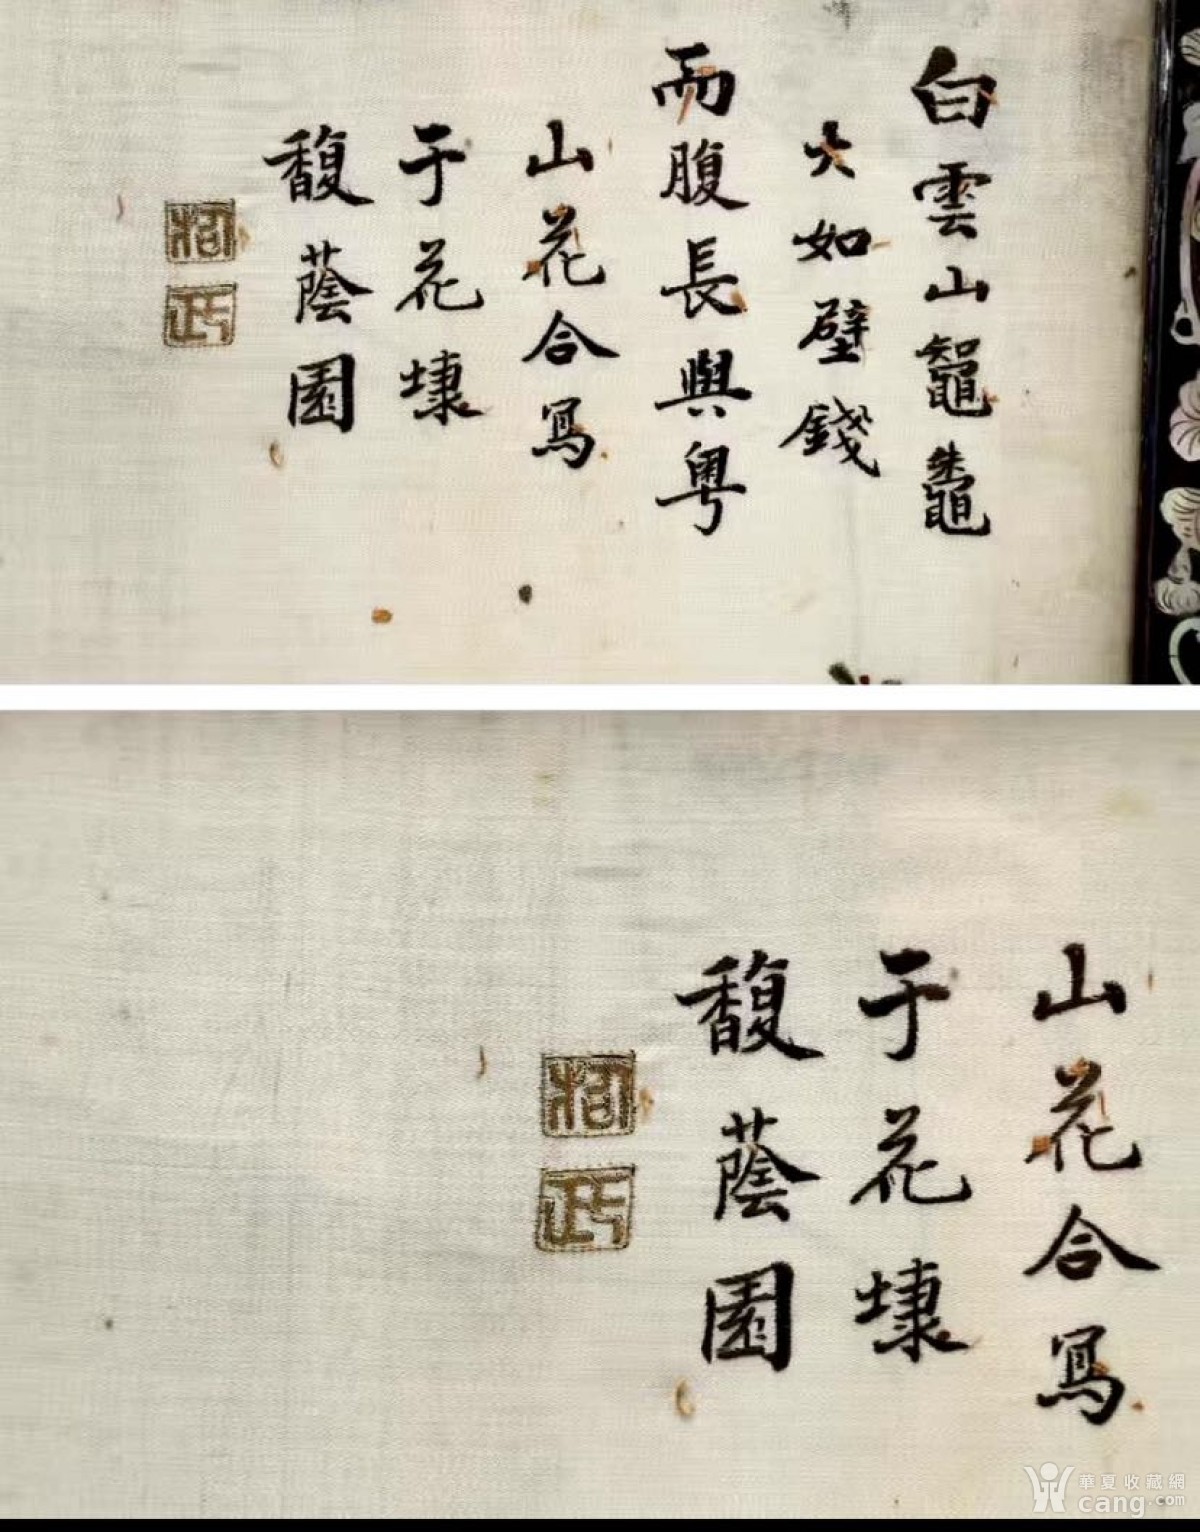 白雲山鼅鼄
大如壁錢
而腹長與粤
山花合寫
于花埭
馥蔭園
山花合寫
于花埭
馥蔭園
華夏收藏網
cang.com